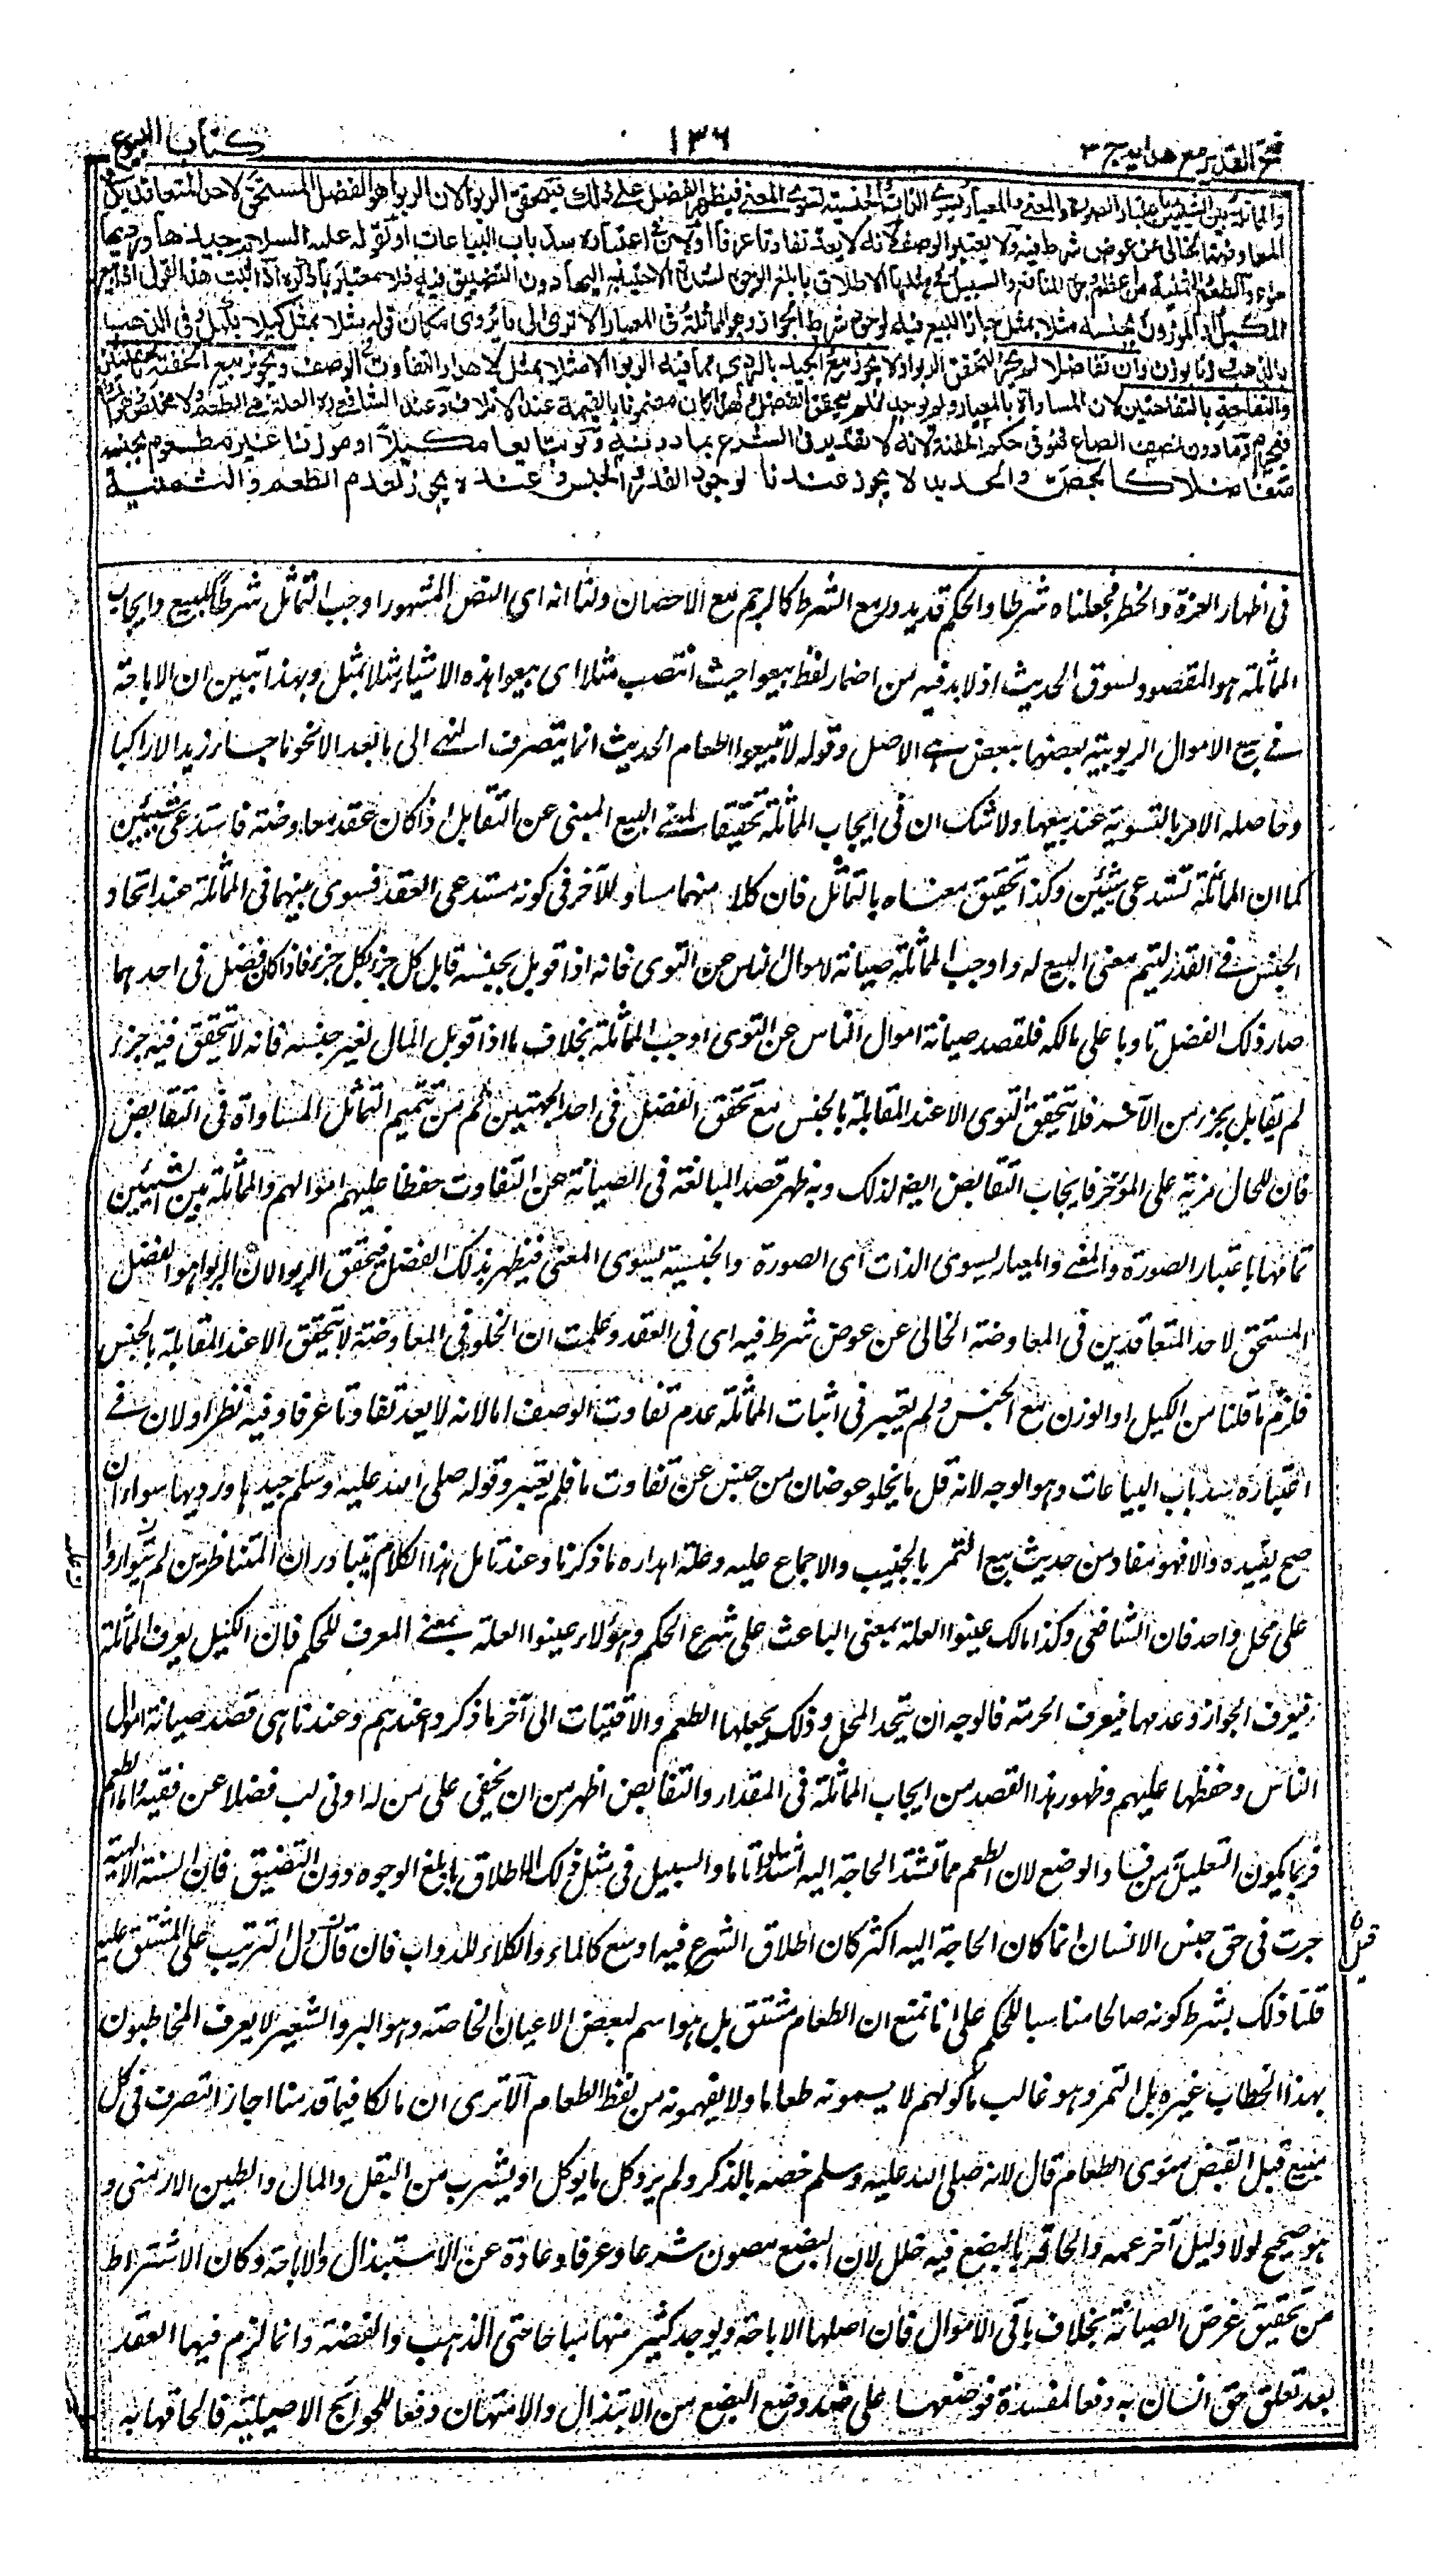 فتح القدير مع هدايه ج ٣
١٣٦
كتاب البيوع
والمماثلة بين الشيئين باعتبار الصورة والمعنى والمعيار يسوى الذات والجنسية تسوى المعنى فيظهر الفضل على ذلك فيتحقق الربوا لان الربوا هو الفضل المستحق لاحد المتعاقدين فى
المعاوضة الخالى عن عوض شرط فيه ولا يعتبر الوصف لانه لا يعد تفاوتا عرفا او لان فى اعتباره سد باب البياعات او لقوله عليه السلام جيدها ورديها
سواء والطعم والثمنية من اعظم وجوه المنافع والسبيل فى مثلها الاطلاق بابلغ الوجوه لشدة الاحتياج اليها دون التضييق فيه فلا معتبر بما ذكره اذا ثبت هذا نقول اذا بيع
المكيل او الموزون بجنسه مثلا بمثل جاز البيع فيه لوجود شرط الجواز وهو المماثلة فى المعيار الا ترى الى ما يروى مكان قوله مثلا بمثل كيلا بكيل وفى الذهب
بالذهب وزنا بوزن وان تفاضلا لم يجز لتحقق الربوا ولا يجوز بيع الجيد بالردى مما فيه الربوا الا مثلا بمثل لاهدار التفاوت فى الوصف ويجوز بيع الحفنة بالحفنتين
والتفاحة بالتفاحتين لان المساواة بالمعيار ولم يوجد فلم يتحقق الفضل ولهذا كان مضمونا بالقيمة عند الاتلاف وعند الشافعى ره العلة هى الطعم ولا مخلص هو المساواة
فيحرم وما دون نصف الصاع فهو فى حكم الحفنة لانه لا تقدير فى الشرع بما دونه ولو تبايعا مكيلا او موزونا غير مطعوم بجنسه
متفاضلا كالجص والحديد لا يجوز عندنا لوجود القدر والجنس وعنده يجوز لعدم الطعم والثمنية
فى اظهار العزة والخطر فجعلناه شرطا والحكم قد يدور مع الشرط كالرجم مع الاحصان ولنا انه اى النص المشهور اوجب التماثل شرطا للبيع وايجاب
المماثلة هو المقصود لسوق الحديث اذ لا بد فيه من اضمار لفظ بيعوا حيث انتصب مثلا اى بيعوا هذه الاشياء مثلا بمثل وبهذا تبين ان الاباحة
فى بيع الاموال الربوية بعضها ببعض هى الاصل وقوله لا تبيعوا الطعام الحديث انما يتصرف النهى الى ما بعد الا نحو ما جاء زيد الا راكبا
وحاصله الامر بالتسوية عند بيعها ولا شك ان فى ايجاب المماثلة تحقيقا لمعنى البيع المبنى عن التقابل اذ كان عقد معاوضة فاستدعى شيئين
كما ان المماثلة تستدعى شيئين وكذا تحقيق معناه بالتماثل فان كلا منهما مساو للآخر فى كونه مستدعى العقد فسوى بينهما فى المماثلة عند اتحاد
الجنس فى القدر ليتم معنى البيع له واوجب المماثلة صيانة لاموال الناس عن التوى فانه اذا قوبل بجنسه قابل كل جزء بكل جزء فاذا كان فضل فى احدهما
صار ذلك الفضل تاويا على مالكه فلقصد صيانة اموال الناس عن التوى اوجب المماثلة بخلاف ما اذا قوبل المال بغير جنسه فانه لا يتحقق فيه جزء
لم يقابل بجزء من الآخر فلا يتحقق التوى الا عند المقابلة بالجنس مع تحقق الفضل فى احد الجهتين ثم من تتميم التماثل المساواة فى التقابض
فان للحال مزية على المؤخر فايجاب التقابض ايضا لذلك وبه ظهر قصد المبالغة فى الصيانة عن التفاوت حفظا عليهم اموالهم والمماثلة بين الشيئين
تمامها باعتبار الصورة والمعنى والمعيار يسوى الذات اى الصورة والجنسية يسوى المعنى فيظهر بذلك الفضل فيتحقق الربوا لان الربوا هو الفضل
المستحق لاحد المتعاقدين فى المعاوضة الخالى عن عوض شرط فيه اى فى العقد وعلمت ان الخلو فى المعاوضة لا يتحقق الا عند المقابلة بالجنس
فلزم ما قلنا من الكيل او الوزن مع الجنس ولم يعتبر فى اثبات المماثلة عدم تفاوت الوصف اما لانه لا يعد تفاوتا عرفا وفيه نظر او لان فى
اعتباره سد باب البياعات وهو الوجه لانه قل ما يخلو عوضان من جنس عن تفاوت ما فلم يعتبر وقوله صلى الله عليه وسلم جيدها ورديها سواء ان
صح يفيده والا فهو مفاد من حديث بيع التمر بالجنيب والاجماع عليه وعلة اهداره ما ذكرنا وعند تامل هذا الكلام يتبادر ان المتناظرين لم يتواردوا
على محل واحد فان الشافعى وكذا مالك عينوا العلة بمعنى الباعث على شرع الحكم وهؤلاء عينوا العلة بمعنى المعرف للحكم فان الكيل يعرف المماثلة
فيعرف الجواز وعدمها فيعرف الحرمة فالوجه ان يتحد المحل وذلك بجعلها الطعم والاقتيات الى آخر ما ذكروا عندهم وعندنا هى قصد صيانة اموال
الناس وحفظها عليهم وظهور هذا القصد من ايجاب المماثلة فى المقدار والتقابض اظهر من ان يخفى على من له ادنى لب فضلا عن فقيه واما الطعم
فربما يكون التعليل به من فساد الوضع لان الطعم مما تشتد الحاجة اليه اشتدادا تاما والسبيل فى مثل ذلك الاطلاق بابلغ الوجوه دون التضييق فان السنة الالهية
جرت فى حق جنس الانسان انما كان الحاجة اليه اكثر كان اطلاق الشرع فيه اوسع كالماء والكلاء للدواب فان قال دل الترتيب على المشتق عليه
قلنا ذلك بشرط كونه صالحا مناسبا للحكم على انا نمنع ان الطعام مشتق بل هو اسم لبعض الاعيان الخاصة وهو البر والشعير لا يعرف المخاطبون
بهذا الخطاب غيره بل التمر وهو غالب ماكولهم لا يسمونه طعاما ولا يفهمونه من لفظ الطعام الا ترى ان مالكا فيما قدمنا اجاز التصرف فى كل
مبيع قبل القبض سوى الطعام قال لانه صلى الله عليه وسلم خصه بالذكر ولم يرد كل ما يوكل او يشرب من البقل والمال والطين الارمنى و
هو صحيح لولا دليل آخر عممه والحاقه بالبضع فيه خلل لان البضع مصون شرعا وعرفا وعادة عن الاستبذال والاباحة وكان الاشتراط
من تحقيق غرض الصيانة بخلاف باقى الاموال فان اصلها الاباحة ويوجد كثير منها مباحا حتى الذهب والفضة وانما لزم فيها العقد
بعد تعلق حق انسان به دفعا لمفسدة فوضعها على ضد وضع البضع من الابتذال والامتهان دفعا للحوائج الاصيلية فالحاقها به